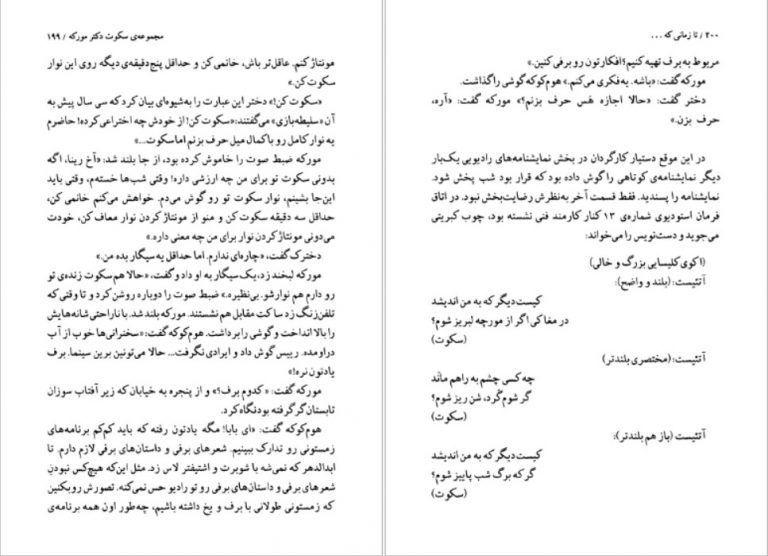 مجموعه‌ی سکوت دکتر مورکه / ۱۹۹
مونتاژ کنم. عاقل‌تر باش، خانمی کن و حداقل پنج دقیقه‌ی دیگه روی این نوار
سکوت کن.»
«سکوت کن!» دختر این عبارت را به‌شیوه‌ای بیان کرد که سی سال پیش به
آن «سلیطه‌بازی» می‌گفتند: «سکوت کن! از خودش چه اختراعی کرده! حاضرم
یه نوار کامل رو با کمال میل حرف بزنم اما سکوت...»
مورکه ضبط صوت را خاموش کرده بود، از جا بلند شد: «آخ رینا، اگه
بدونی سکوت تو برای من چه ارزشی داره! وقتی شب‌ها خسته‌م، وقتی باید
این‌جا بشینم، نوار سکوت تو رو گوش می‌دم. خواهش می‌کنم خانمی کن،
حداقل سه دقیقه سکوت کن و منو از مونتاژ کردن نوار معاف کن، خودت
می‌دونی مونتاژ کردن نوار برای من چه معنی داره.»
دخترک گفت، «چاره‌ای ندارم. اما حداقل یه سیگار بده من.»
مورکه لبخند زد، یک سیگار به او داد و گفت، «حالا هم سکوت زنده‌ی تو
رو دارم هم نوارشو. بی‌نظیره.» ضبط صوت را دوباره روشن کرد و تا وقتی که
تلفن زنگ زد ساکت مقابل هم نشستند. مورکه بلند شد. با ناراحتی شانه‌هایش
را بالا انداخت و گوشی را برداشت. هوم‌کوکه گفت: «سخنرانی‌ها خوب از آب
دراومده. رییس گوش داد و ایرادی نگرفت... حالا می‌تونین برین سینما. برف
یادتون نره!»
مورکه گفت: «کدوم برف؟» و از پنجره به خیابان که زیر آفتاب سوزان
تابستان گر گرفته بود نگاه کرد.
هوم‌کوکه گفت: «ای بابا! مگه یادتون رفته که باید کم‌کم برنامه‌های
زمستونی رو تدارک ببینیم. شعرهای برفی و داستان‌های برفی لازم دارم. تا
ابدالدهر که نمی‌شه با شوبرت و اشتیفتر لاس زد. مثل این‌که هیچ‌کس نبودن
شعرهای برفی و داستان‌های برفی رو تو رادیو حس نمی‌کنه. تصورش رو بکنین
که زمستونی طولانی با برف و یخ داشته باشیم، چه‌طور اون همه برنامه‌ی
۲۰۰ / تا زمانی که ...
مربوط به برف تهیه کنیم؟ افکارتون رو برفی کنین.»
مورکه گفت: «باشه. یه فکری می‌کنم.» هوم‌کوکه گوشی را گذاشت.
دختر گفت: «حالا اجازه هَس حرف بزنم؟» مورکه گفت: «آره،
حرف بزن.»
در این موقع دستیار کارگردان در بخش نمایشنامه‌های رادیویی یک‌بار
دیگر نمایشنامه‌ی کوتاهی را گوش داده بود که قرار بود شب پخش شود.
نمایشنامه را پسندید. فقط قسمت آخر به‌نظرش رضایت‌بخش نبود. در اتاق
فرمان استودیوی شماره‌ی ۱۳ کنار کارمند فنی نشسته بود، چوب کبریتی
می‌جوید و دست‌نویس را می‌خواند:
(اکوی کلیسایی بزرگ و خالی)
آتئیست: (بلند و واضح):
کیست دیگر که به من اندیشد
در مغاکی اگر از مورچه لبریز شوم؟
(سکوت)
آتئیست: (مختصری بلندتر):
چه کسی چشم به راهم ماند
گر شوم گَرد، شن ریز شوم؟
(سکوت)
آتئیست: (باز هم بلندتر):
کیست دیگر که به من اندیشد
گر که برگ شب پاییز شوم؟
(سکوت)